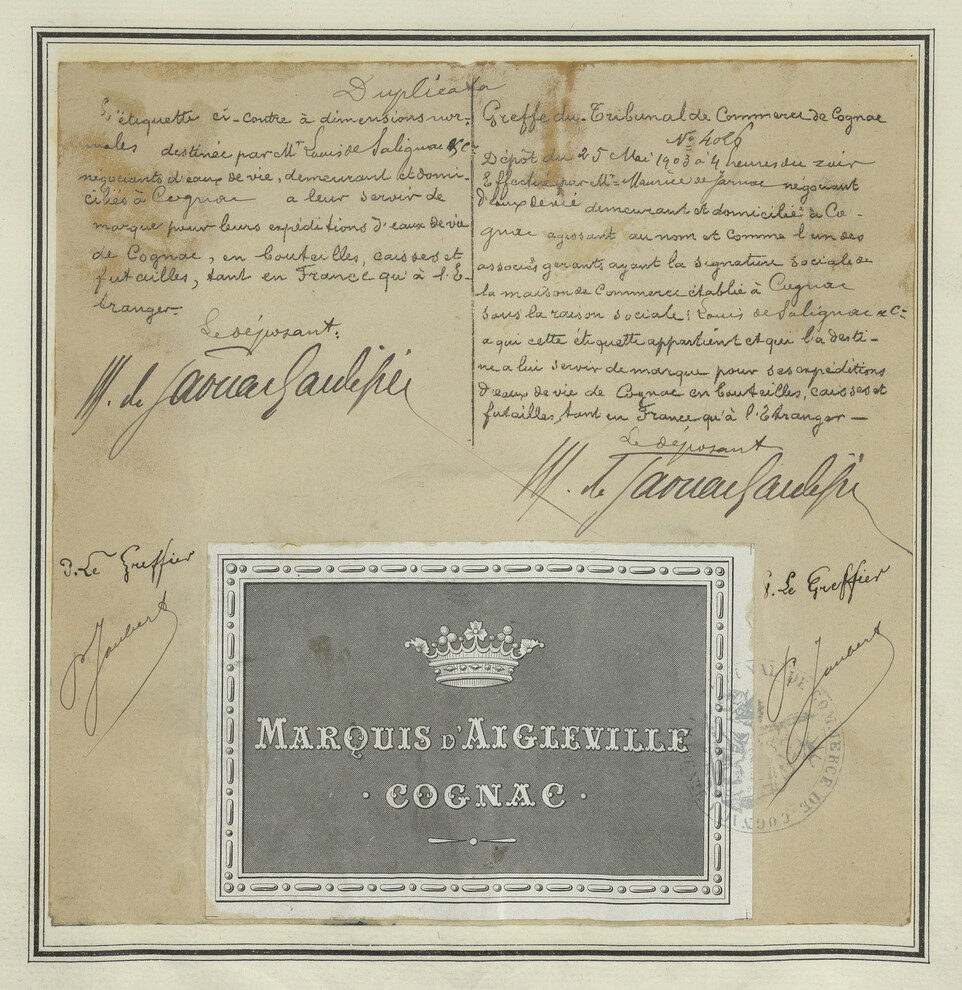 Duplicata
L'étiquette ci-contre à dimensions nor-
males destinée par Mr Louis de Salignac & Cie
négociants d'eaux de vie, demeurant et domi-
ciliés à Cognac a leur servir de
marque pour leurs expéditions d'eaux de vie
de Cognac, en bouteilles, caisses et
futailles, tant en France qu'à l'É-
tranger.
Le déposant:
M. de
Greffe du Tribunal de Commerce de Cognac
No
Dépôt du 25 Mai 1903 à 4 heures du soir
Effectué par Mr Maurice de Jarnac négociant
d'eaux de vie demeurant et domicilié à Co-
gnac agissant au nom et comme l'un des
associés gérants, ayant la signature sociale de
la maison de Commerce établie à Cognac
sous la raison sociale: Louis de Salignac & Cie
a qui cette étiquette appartient et qui l'a desti-
née a lui servir de marque pour ses expéditions
d'eaux de vie de Cognac en bouteilles, caisses et
futailles, tant en France qu'à l'Étranger —
Le déposant
M. de
P. Le Greffier
Joubert
P. Le Greffier
Joubert
MARQUIS D'AIGLEVILLE
· COGNAC ·
COMMERCE DE COGNAC